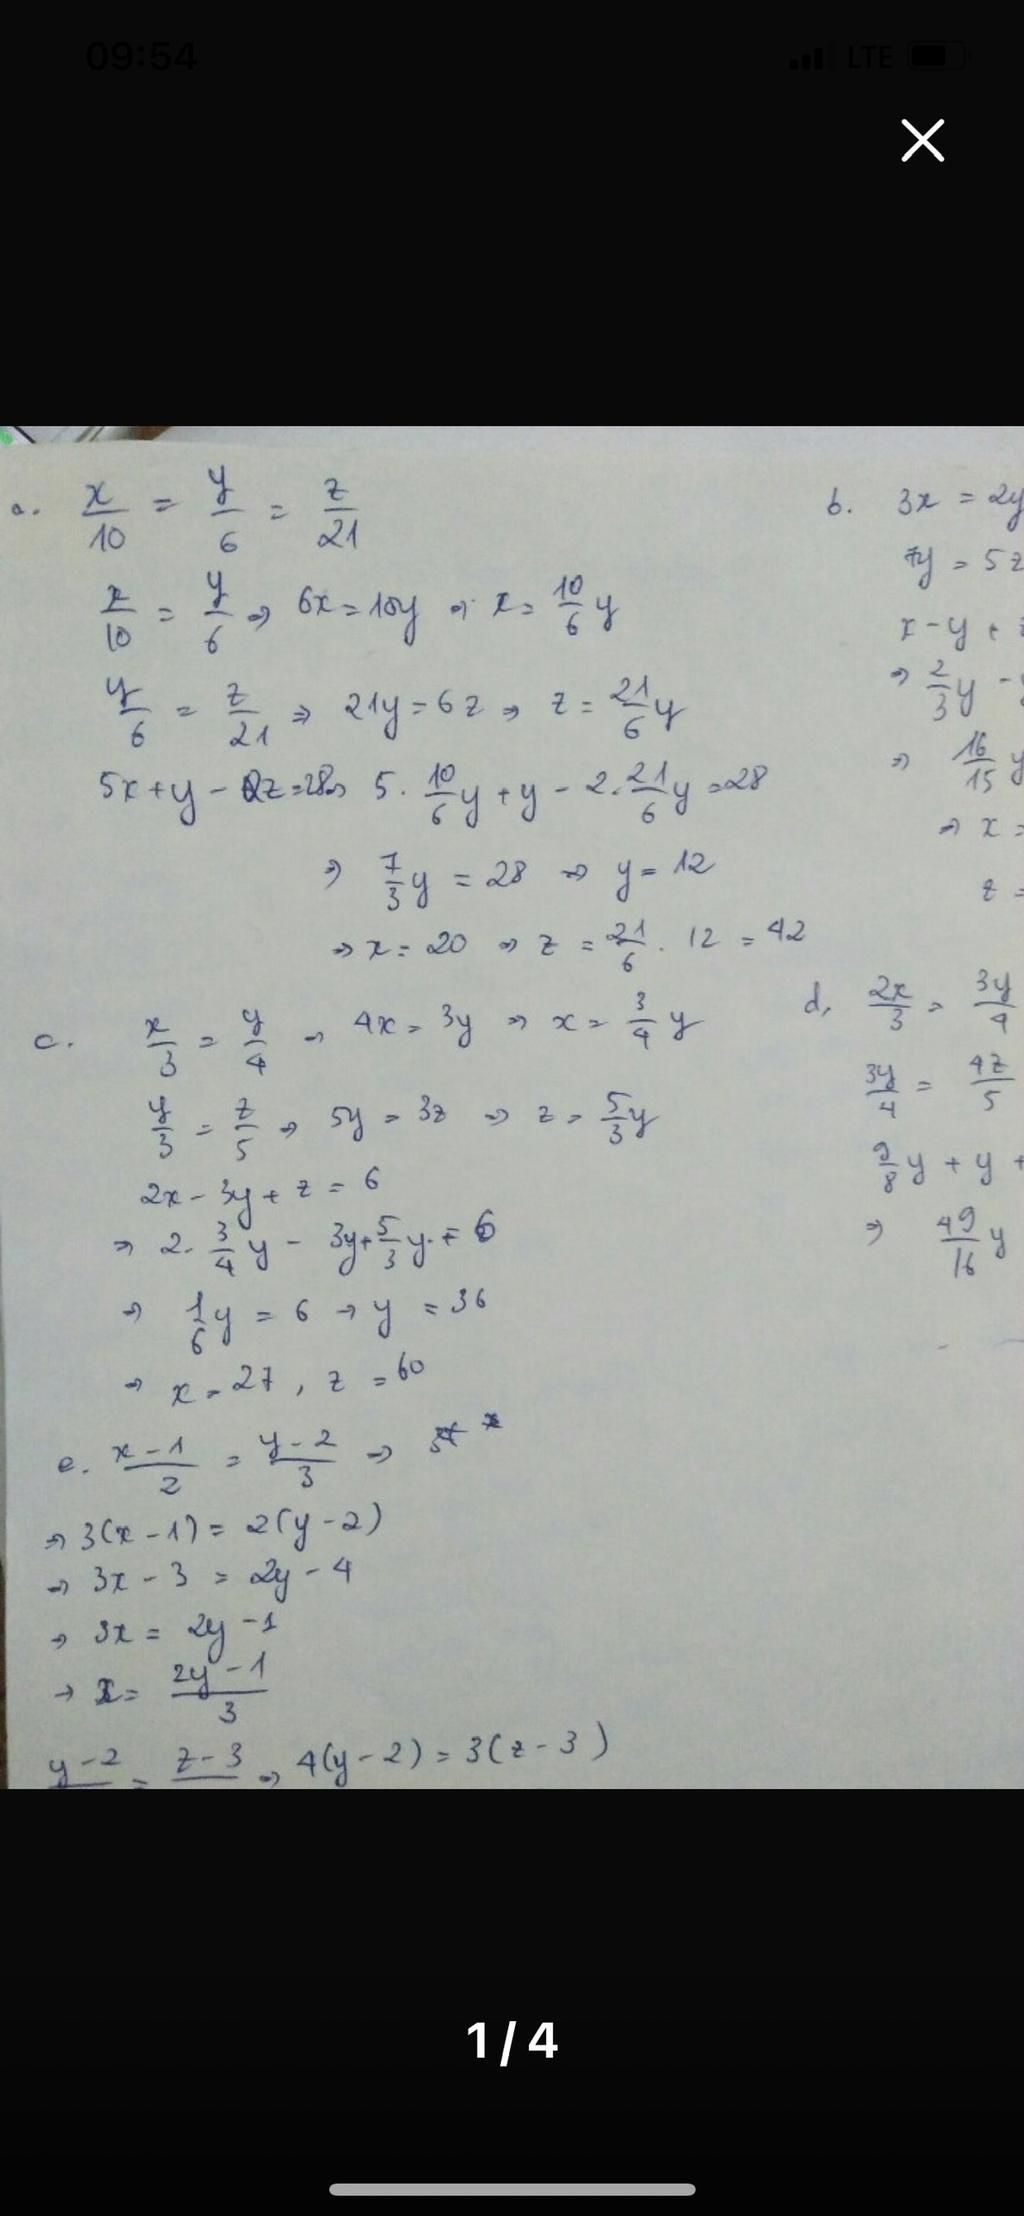 09:54 LTE
a. x/10 = y/6 = z/21
x/10 = y/6 ⇒ 6x = 10y ⇒ x = 10/6 y
y/6 = z/21 ⇒ 21y = 6z ⇒ z = 21/6 y
5x + y - 2z = 28 ⇒ 5. 10/6 y + y - 2. 21/6 y = 28
⇒ 7/3 y = 28 ⇒ y = 12
⇒ x = 20 ⇒ z = 21/6 . 12 = 42
b. 3x = 2y
7y = 5z
x - y +
⇒ 2/3 y -
⇒ 16/15 y
⇒ x =
z =
c. x/3 = y/4 ⇒ 4x = 3y ⇒ x = 3/4 y
y/3 = z/5 ⇒ 5y = 3z ⇒ z = 5/3 y
2x - 3y + z = 6
⇒ 2. 3/4 y - 3y + 5/3 y = 6
⇒ 1/6 y = 6 → y = 36
⇒ x = 27, z = 60
d, 2x/3 = 3y/4
3y/4 = 4z/5
9/8 y + y +
⇒ 49/16 y
e. x-1/2 = y-2/3 ⇒
⇒ 3(x - 1) = 2(y - 2)
⇒ 3x - 3 = 2y - 4
⇒ 3x = 2y - 1
→ x = 2y-1/3
y-2 = z-3 ⇒ 4(y - 2) = 3(z - 3)
1/4